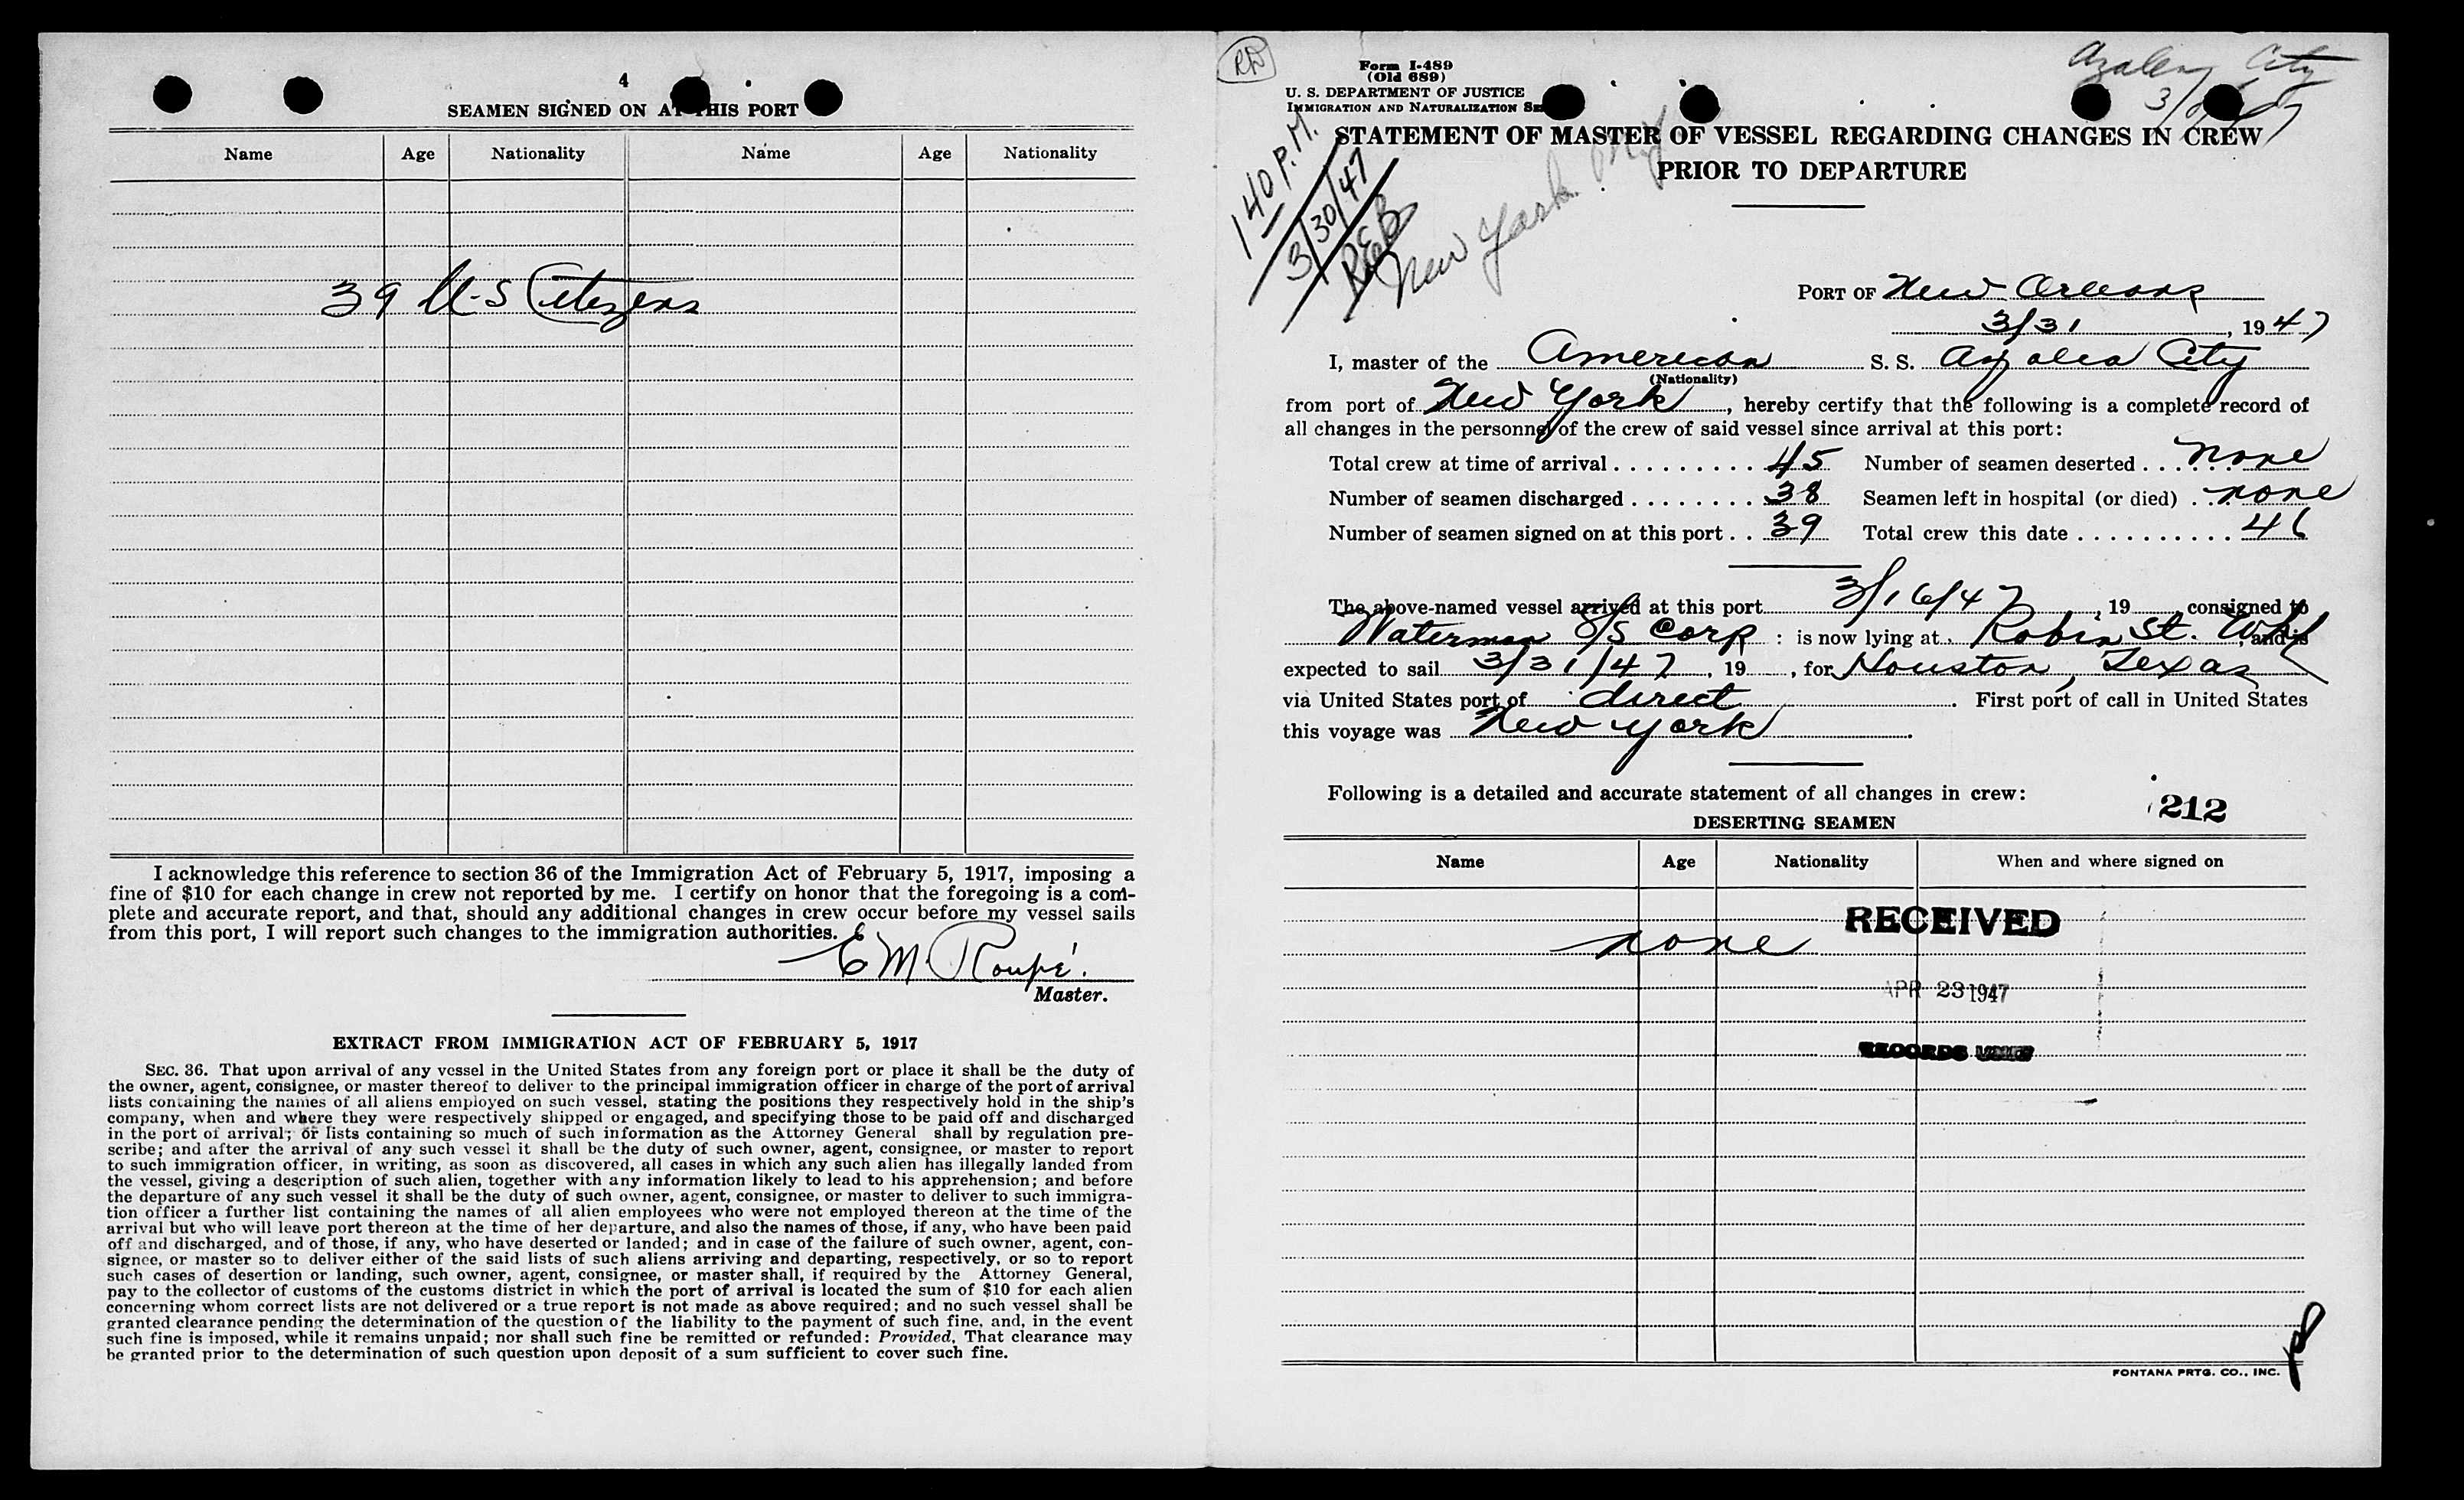 4
SEAMEN SIGNED ON AT THIS PORT
Name Age Nationality Name Age Nationality
39 U-S Citizens
I acknowledge this reference to section 36 of the Immigration Act of February 5, 1917, imposing a
fine of $10 for each change in crew not reported by me. I certify on honor that the foregoing is a com-
plete and accurate report, and that, should any additional changes in crew occur before my vessel sails
from this port, I will report such changes to the immigration authorities.
E M. Roupé.
Master.
EXTRACT FROM IMMIGRATION ACT OF FEBRUARY 5, 1917
SEC. 36. That upon arrival of any vessel in the United States from any foreign port or place it shall be the duty of
the owner, agent, consignee, or master thereof to deliver to the principal immigration officer in charge of the port of arrival
lists containing the names of all aliens employed on such vessel, stating the positions they respectively hold in the ship's
company, when and where they were respectively shipped or engaged, and specifying those to be paid off and discharged
in the port of arrival; or lists containing so much of such information as the Attorney General shall by regulation pre-
scribe; and after the arrival of any such vessel it shall be the duty of such owner, agent, consignee, or master to report
to such immigration officer, in writing, as soon as discovered, all cases in which any such alien has illegally landed from
the vessel, giving a description of such alien, together with any information likely to lead to his apprehension; and before
the departure of any such vessel it shall be the duty of such owner, agent, consignee, or master to deliver to such immigra-
tion officer a further list containing the names of all alien employees who were not employed thereon at the time of the
arrival but who will leave port thereon at the time of her departure, and also the names of those, if any, who have been paid
off and discharged, and of those, if any, who have deserted or landed; and in case of the failure of such owner, agent, con-
signee, or master so to deliver either of the said lists of such aliens arriving and departing, respectively, or so to report
such cases of desertion or landing, such owner, agent, consignee, or master shall, if required by the Attorney General,
pay to the collector of customs of the customs district in which the port of arrival is located the sum of $10 for each alien
concerning whom correct lists are not delivered or a true report is not made as above required; and no such vessel shall be
granted clearance pending the determination of the question of the liability to the payment of such fine, and, in the event
such fine is imposed, while it remains unpaid; nor shall such fine be remitted or refunded: Provided, That clearance may
be granted prior to the determination of such question upon deposit of a sum sufficient to cover such fine.
RD
Form I-489
(Old 689)
U. S. DEPARTMENT OF JUSTICE
IMMIGRATION AND NATURALIZATION
Azalea City
STATEMENT OF MASTER OF VESSEL REGARDING CHANGES IN CREW
PRIOR TO DEPARTURE
1 40 P.M.
3/30/47
New York
PORT OF New Orleans
3/31, 1947
I, master of the American S. S. Azalea City
(Nationality)
from port of New York, hereby certify that the following is a complete record of
all changes in the personnel of the crew of said vessel since arrival at this port:
Total crew at time of arrival 45 Number of seamen deserted none
Number of seamen discharged 38 Seamen left in hospital (or died) none
Number of seamen signed on at this port 39 Total crew this date 46
The above-named vessel arrived at this port 3/16/47, 19 consigned to
Waterman S/S Corp : is now lying at Robin St. Whf, and is
expected to sail 3/31/47, 19, for Houston, Texas
via United States port of direct. First port of call in United States
this voyage was New York.
Following is a detailed and accurate statement of all changes in crew:
212
DESERTING SEAMEN
Name Age Nationality When and where signed on
RECEIVED
none
APR 23 1947
RECORDS UNIT
FONTANA PRTG. CO., INC.